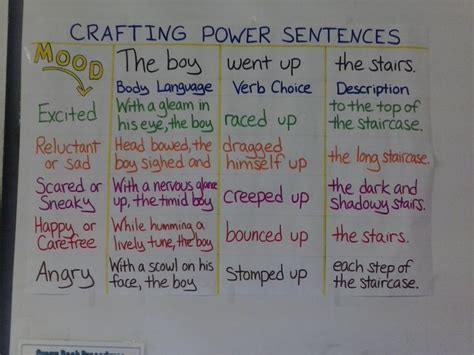 CRAFTING POWER SENTENCES
MOOD The boy went up the stairs.
Body Language Verb Choice Description
Excited With a gleam in his eye, the boy raced up to the top of the staircase.
Reluctant or sad Head bowed, the boy sighed and dragged himself up the long staircase.
Scared or Sneaky With a nervous glance up, the timid boy creeped up the dark and shadowy stairs.
Happy or Carefree While humming a lively tune, the boy bounced up the stairs.
Angry With a scowl on his face, the boy stomped up each step of the staircase.